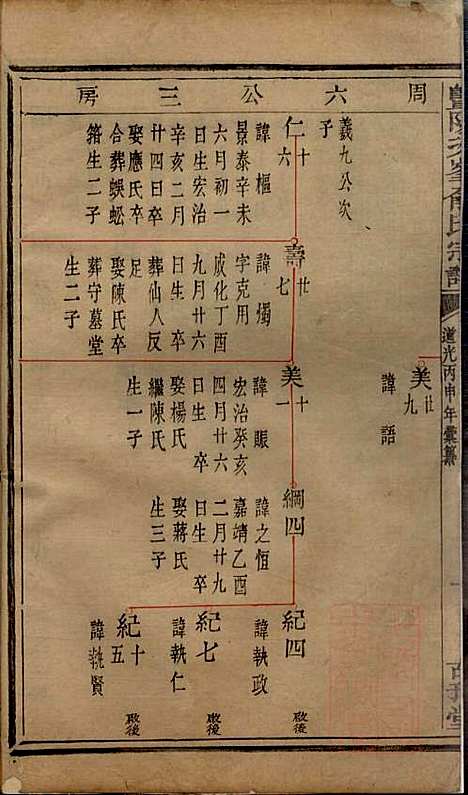 周六公三房
美廿九
諱語
義九公次
子
仁十六
諱樞
景泰辛未
六月初一
日生宏治
辛亥二月
廿四日卒
娶應氏卒
合葬蜈蚣
箝生二子
壽廿七
諱燭
字克用
成化丁酉
九月廿六
日生 卒
葬仙人反
足
娶陳氏卒
葬守墓堂
生二子
美十一
諱賑
宏治癸亥
四月廿六
日生 卒
娶楊氏
繼陳氏
生一子
綱四
諱之恒
嘉靖乙酉
二月廿九
日生 卒
娶蔣氏
生三子
紀四
諱執政
啟後
紀七
諱執仁
啟後
紀十五
諱執賢
啟後
道光丙申年彙纂